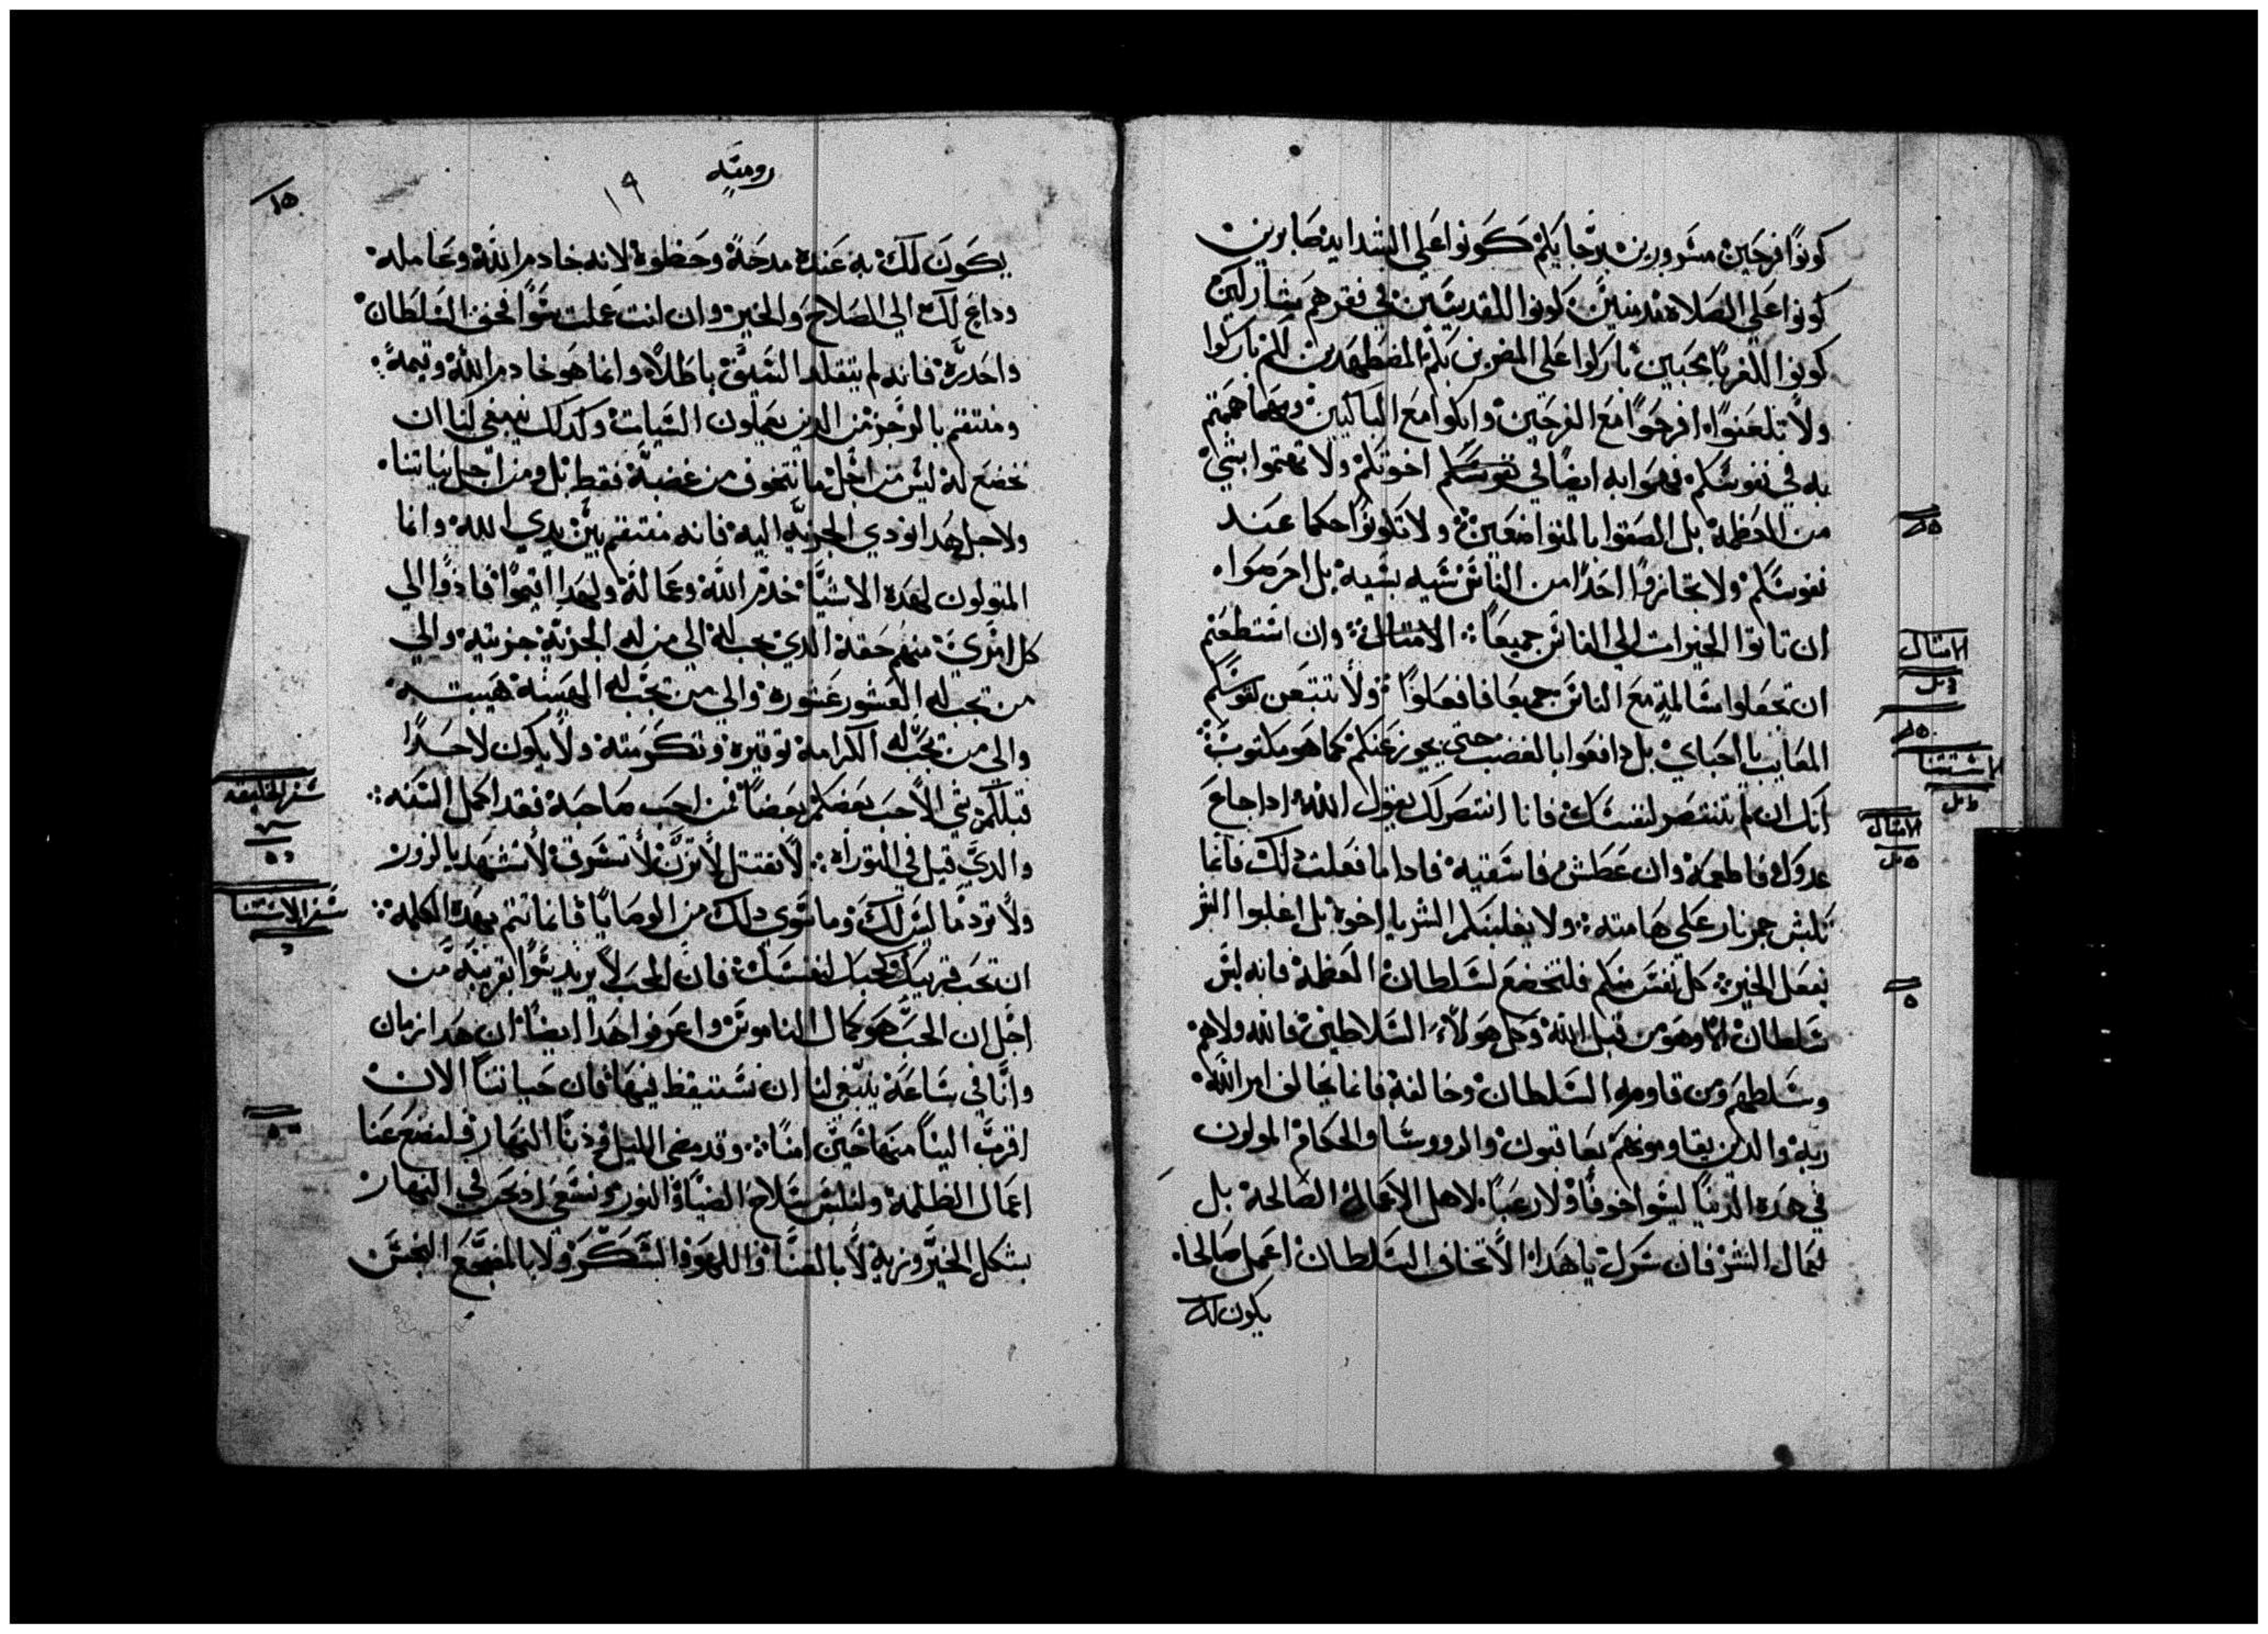 كونوا فرحين مسرورين برجايكم كونوا علي الشدايد صابرين
كونوا علي الصلاه مدمنين كونوا للقديسين في فقرهم مشاركين
كونوا للغربا محبين باركوا علي المضطهدين لكم باركوا
ولا تلعنوا افرحوا مع الفرحين وابكوا مع الباكيين ومهما هممتم
به في نفوسكم فهموا به ايضا في اخوتكم ولا تهتموا بشي
من العظمة بل الصقوا بالمتواضعين ولا تكونوا حكما عند
نفوسكم ولا تجازوا احدا من الناس سيه بسيه بل احرصوا
ان تاتوا الخيرات الي الناس جميعا وان استطعتم
ان تجعلوا مسالمة مع الناس جميعا فافعلوا ولا
المعايب يا احباي بل دافعوا بالغضب حتي يجوز عنكم كما هو مكتوب
انك ان لم تنتصر لنفسك فانا انتصر لك يقول الله ادا جاع
عدوك فاطعمه وان عطش فاسقيه فادا ما فعلت دلك فانما
تكبس جمر نار علي هامته ولا يغلبنكم الشر يا اخوه بل اغلبوا الشر
بفعل الخير كل نفس منكم فلتخضع لسلطان العظمه فانه ليس
سلطان الا وهو من قبل الله وكل هولاء السلاطين فالله ولاهم
وسلطهم ومن قاوم السلطان وخالفه فانما يخالف امر الله
ربه والدين يقاومونهم يعاقبون والروسا والحكام المولون
في هده الدنيا ليسوا خوفا ولا رعبا لاهل الاعمال الصالحة بل
لعمال الشر فان سرك يا هدا الا تخاف السلطان اعمل صالحا
يكون لك
الامثال
الاستتنا
الامثال
روميه
١٩
يكون لك به عنده مدحة وحظوة لانه خادم الله وعامله
وداع لك الي الصلاح والخير وان انت عملت سوا فخف السلطان
واحدره فانه لم يتقلد السيف باطلا وانما هو خادم الله
ومنتقم بالرجز من الدين يعملون السيات وكدلك ينبغي لنا ان
نخضع له ليس من اجل ما نتخوف من غضبه فقط بل ومن اجل نياتنا
ولاجل هدا نودي الجزيه اليه فانه منتقم بين يدي الله وانما
المتولون لهده الاشيا خدم الله وعماله ولهدا اقيموا فادوا الي
كل امري منهم حقه الدي يجب له الي من له الجزية جزيته والي
من تجب له العشور عشوره والي من تجب له الهيبه هيبته
والي من تجب له الكرامه توقيره وتكرمته ولا يكون لاحدا
قبلكم شي الا حب بعضكم بعضا فمن احب صاحبه فقد اكمل السنه
والدي قيل في التوراه لا تقتل لا تزن لا تسرق لا تشهد بالزور
ولا ترد ما ليس لك وما سوي دلك من الوصايا فانما تتم بهده الكلمه
ان تحب قريبك كحبك لنفسك فان الحب لا يريد سوا بقريبه من
اجل ان الحب هو كمال الناموس واعرفوا هدا ايضا ان هدا زمان
وانا في ساعة ينبغي لنا ان نستيقظ فيها فان حياتنا الان
اقرب الينا منها حين امنا وقد مضي الليل ودنا النهار فلنضع عنا
اعمال الظلمة ولنلبس سلاح الضيا والنور ونسعي نحن في النهار
بشكل الخير وزيه لا بالغنا واللهو والسكر ولا بالمضجع النجس
سفر الخليقه
سفر الاستتنا